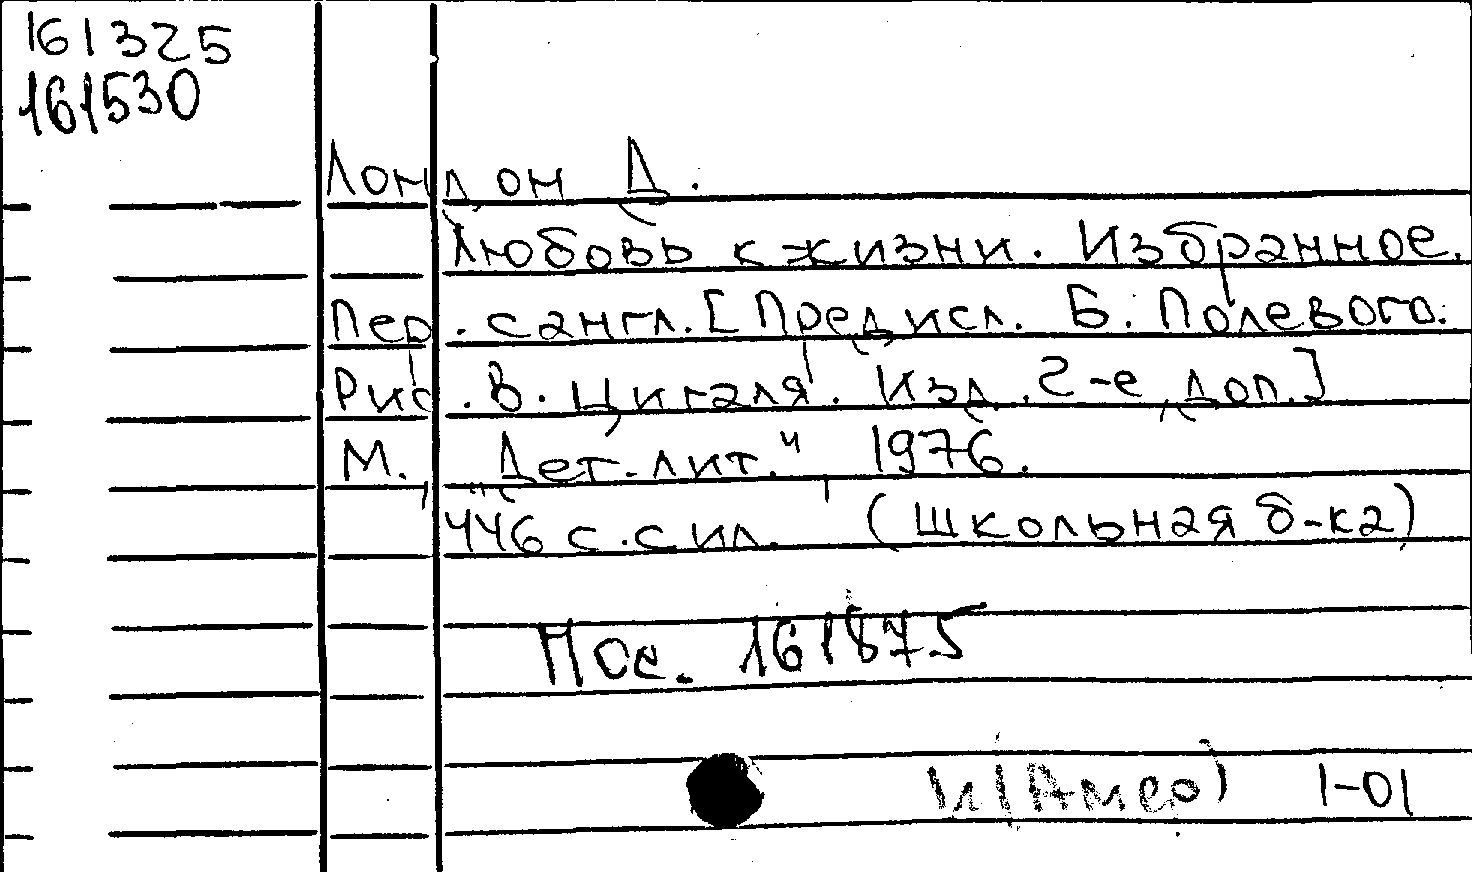 161325
161530
Лондон Д.
Любовь к жизни. Избранное.
Пер. с англ. [Предисл. Б. Полевого.
Рис. В. Цигаля. Изд. 2-е, доп.]
М., "Дет. лит.", 1976.
446 с. с ил. (Школьная б-ка)
Пос. 161875
И(Амер) 1-01